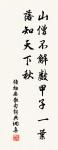 山僧不解數甲子一葉
落知天下秋